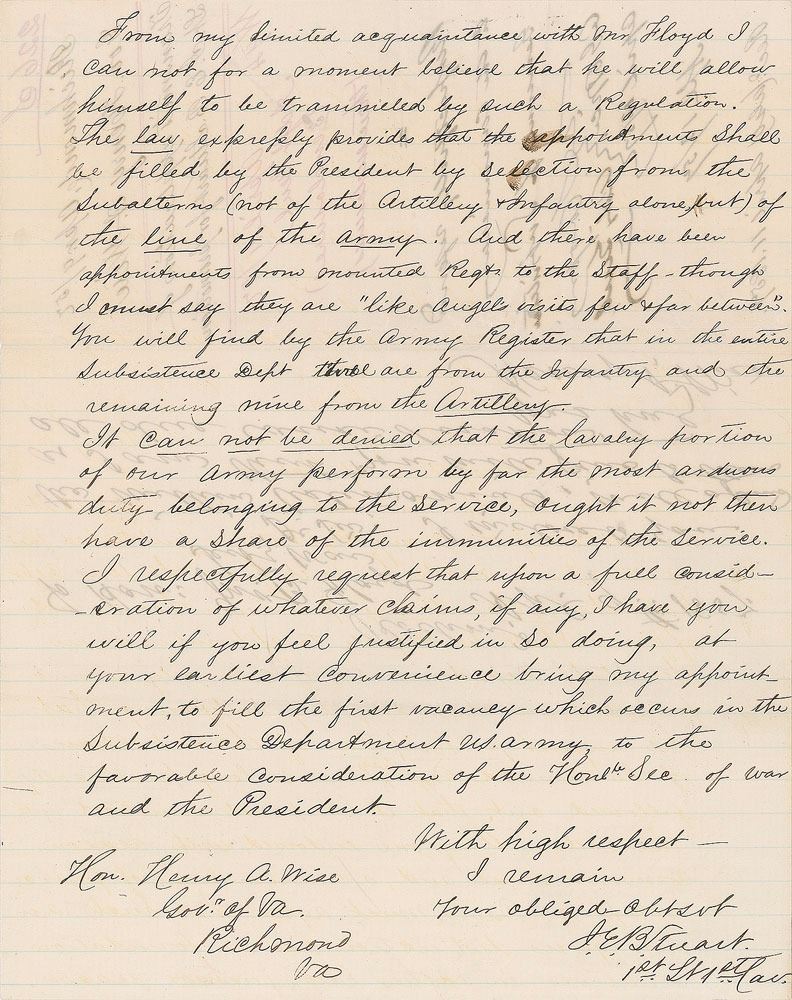 From my limited acquaintance with Mr Floyd I
can not for a moment believe that he will allow
himself to be trammeled by such a Regulation.
The law expressly provides that the appointments shall
be filled by the President by selection from the
Subalterns (not of the Artillery & Infantry alone, but) of
the line of the army. And there have been
appointments from mounted Regts to the Staff – though
I must say they are "like Angels visits few & far between".
You will find by the Army Register that in the entire
Subsistence Dept three are from the Infantry and the
remaining nine from the Artillery.
It can not be denied that the Cavalry portion
of our Army perform by far the most arduous
duty belonging to the service, ought it not then
have a share of the immunities of the service.
I respectfully request that upon a full consid-
-eration of whatever claims, if any, I have you
will if you feel justified in so doing, at
your earliest convenience bring my appoint-
ment, to fill the first vacancy which occurs in the
Subsistence Department U.S. army, to the
favorable consideration of the Honble Sec. of war
and the President.
With high respect –
I remain
Your obliged obtsvt
J.E.B. Stuart.
1st Lt 1st Cav.
Hon. Henry A. Wise
Govr of Va.
Richmond
Va